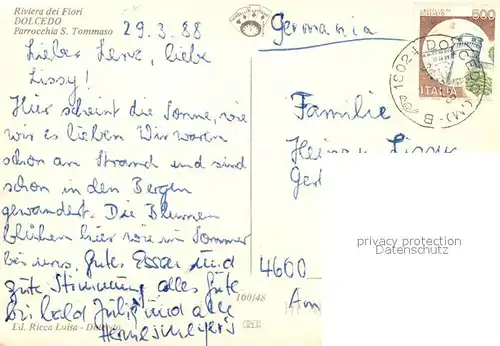 Riviera dei Fiori
DOLCEDO
Parrocchia S. Tommaso
29.3.88
Germania
500
ITALIA
18024 DOLCEDO (IM)
Lieber Lenz, liebe
Lissy!
Hier scheint die Sonne, wie
wir es lieben. Wir waren
schon am Strand und sind
schon in den Bergen
gewandert. Die Blumen
blühen hier wie im Sommer
bei uns. Gutes Essen und
gute Stimmung alles Gute
bis bald Julig und alle
Familie
Lissy
4600
privacy protection
Datenschutz
100/48
Ed. Ricca Luisa - Dolcedo